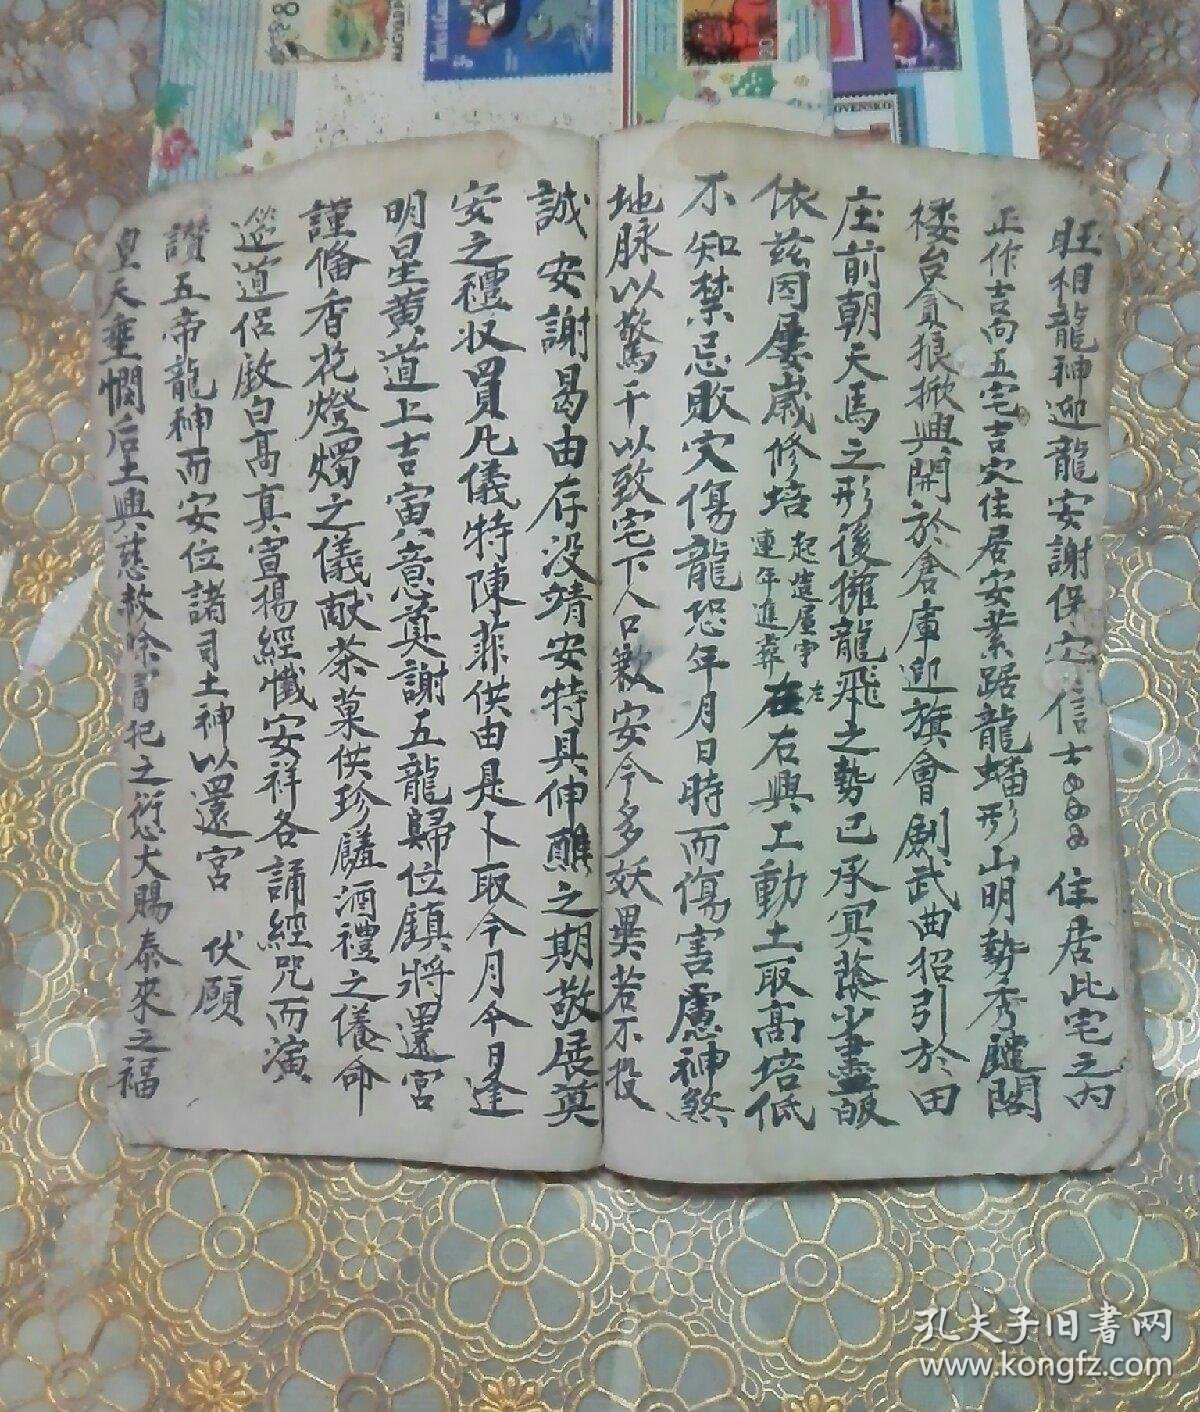 旺相龍神迎龍安謝保宅信士ΦΦΦ住居此宅之内
正作吉向五宅吉穴住居安業踞龍蟠形山明勢秀龍閣
楼台貪狼掀興開於倉庫迎旗會劍武曲招引於田
庄前朝天馬之形後擁龍飛之勢已承冥蔭出盡
依茲因屡歲修培起造屋宇連年進葬左右興工動土取高培低
不知禁忌敗穴傷龍恐年月日時而傷害慮神煞
地脉以驚千以致宅下人口歉安今多妖異若不投
誠安謝曷由存没靖安特具伸醮之期敬展奠
安之禮収買凡儀特陳菲供由是卜取今月今日逢
明星黄道上吉寅意奠謝五龍歸位鎮将還宮
謹備香花燈燭之儀献茶菓供珍饈酒禮之儀命
迎道侣啟白高真宣揚經懺安祥各誦經咒而演
讚五帝龍神而安位諸司土神以還宮　伏願
皇天垂憫后土興慈赦除冒犯之愆大賜泰來之福
OVENSKO
孔夫子旧書网
www.kongfz.com